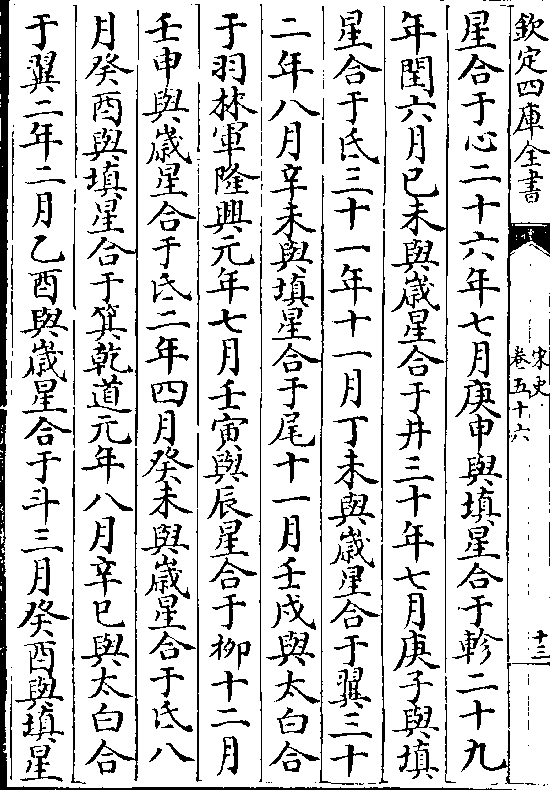 欽定四庫全書
宋史
卷五十六
十三
星合于心二十六年七月庚申與填星合于軫二十九
年閏六月已未與歲星合于井三十年七月庚子與填
星合于氐三十一年十一月丁未與歲星合于翼三十
二年八月辛未與填星合于尾十一月壬戌與太白合
于羽林軍隆興元年七月壬寅與辰星合于柳十二月
壬申與歲星合于氐二年四月癸未與歲星合于氐八
月癸酉與填星合于箕乾道元年八月辛巳與太白合
于翼二年二月乙酉與歲星合于斗三月癸酉與填星